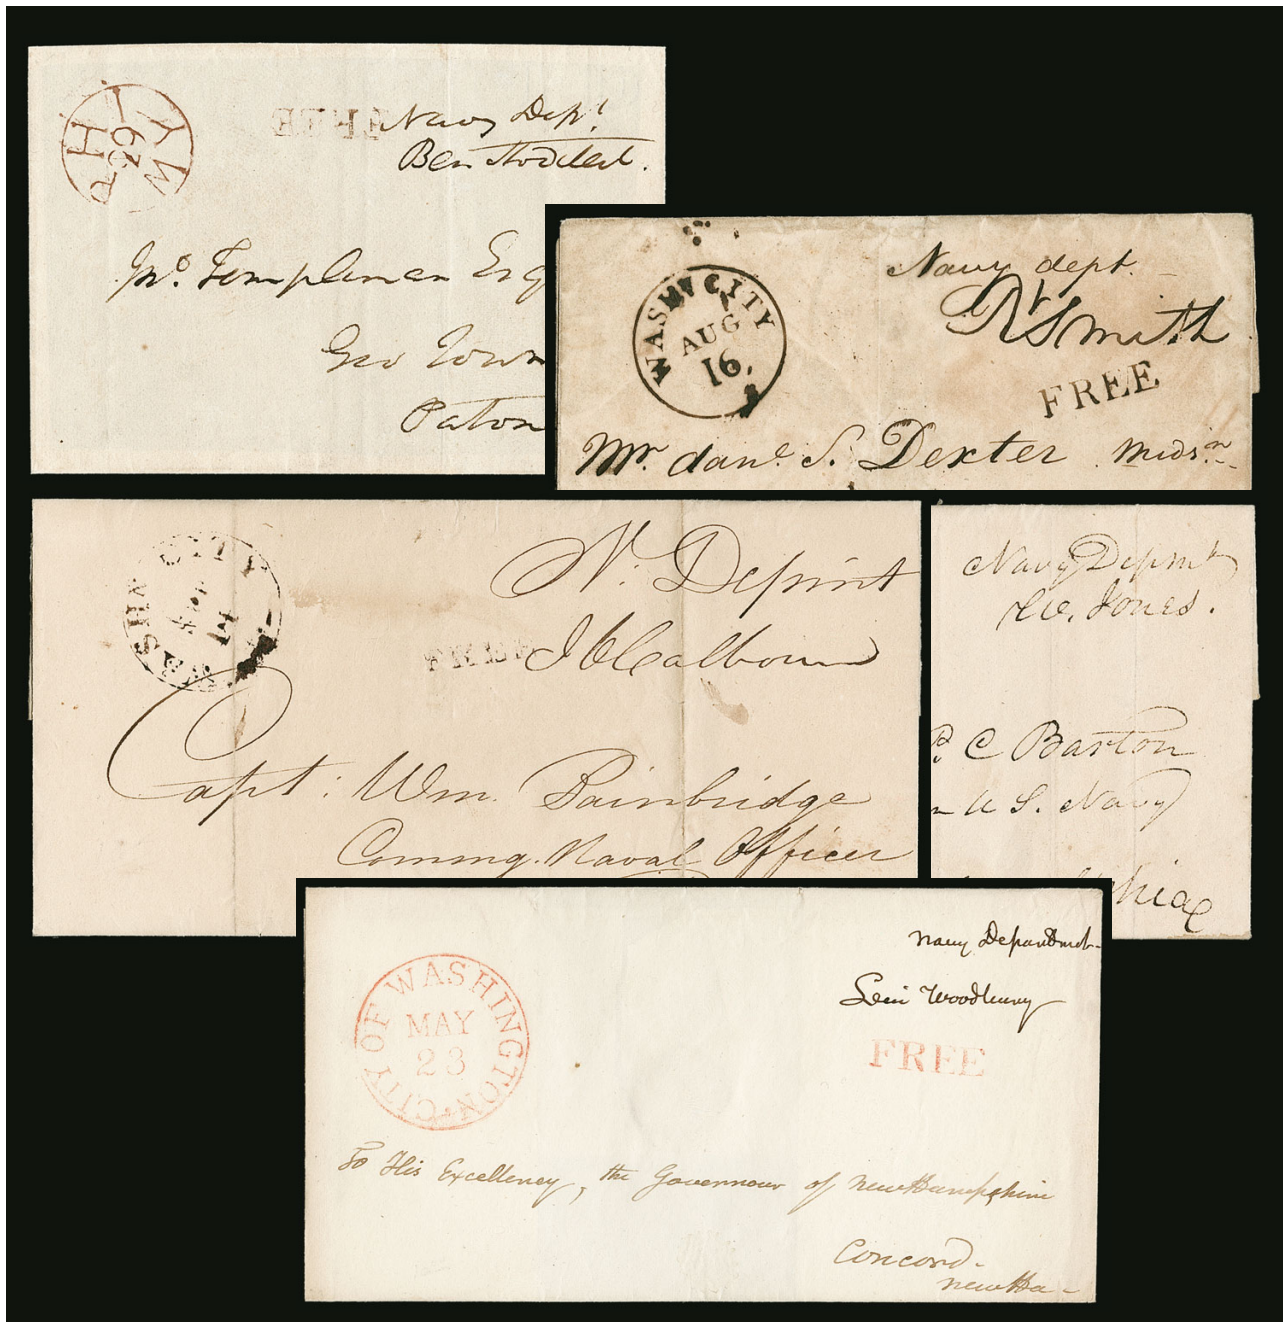 PH
29
Y
W
FREE
Navy Dept
Ben Stoddert.
Jno. Templeman Esq
Geo Town
Paton
WASHN CITY
AUG
16.
Navy dept.
Rt Smith
FREE
Mr. danl. S. Dexter Midsn.
WASHN CITY
14
N: Depmt
FREE
J C Calhoun
Capt: Wm. Bainbridge
Commg. Naval Officer
Navy Depmt
W. Jones.
P. C Barton
U S. Navy
CITY OF WASHINGTON
MAY
23
Navy Department
Levi Woodbury
FREE
To His Excellency, the Governour of New Hampshire
Concord
New Ha